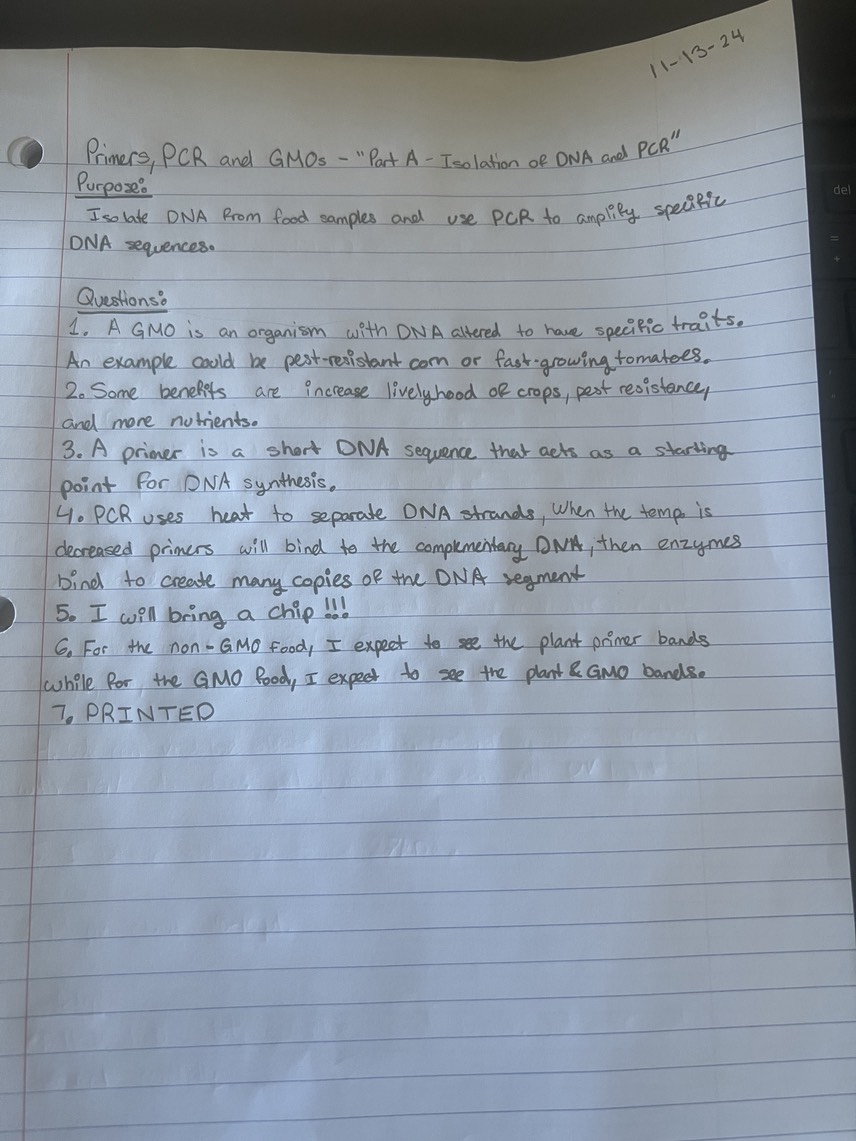 11-13-24
Primers, PCR and GMOs - "Part A - Isolation of DNA and PCR"
Purpose:
Isolate DNA from food samples and use PCR to amplify specific
DNA sequences.
Questions:
1. A GMO is an organism with DNA altered to have specific traits.
An example could be pest-resistant corn or fast-growing tomatoes.
2. Some benefits are increase livelyhood of crops, pest resistance,
and more nutrients.
3. A primer is a short DNA sequence that acts as a starting
point for DNA synthesis.
4. PCR uses heat to separate DNA strands, When the temp is
decreased primers will bind to the complementary DNA, then enzymes
bind to create many copies of the DNA segment
5. I will bring a chip !!!
6. For the non-GMO food, I expect to see the plant primer bands
while for the GMO food, I expect to see the plant & GMO bands.
7. PRINTED
del
=
+